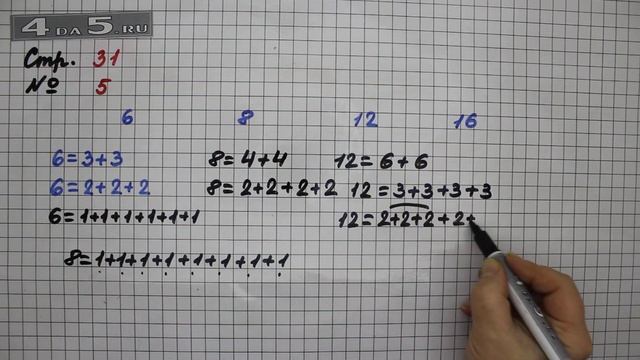 4 ДА 5.RU
Стр. 31
№ 5
6 8 12 16
6=3+3 8=4+4 12=6+6
6=2+2+2 8=2+2+2+2 12=3+3+3+3
6=1+1+1+1+1+1 12=2+2+2+2+
8=1+1+1+1+1+1+1+1